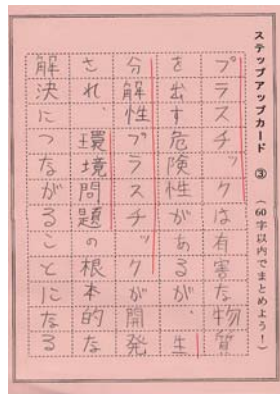 ステップアップカード ③ (60字以内でまとめよう!)
プラスチックは有害な物質
を出す危険性があるが、生
分解性プラスチックが開発
され、環境問題の根本的な
解決につながることになる